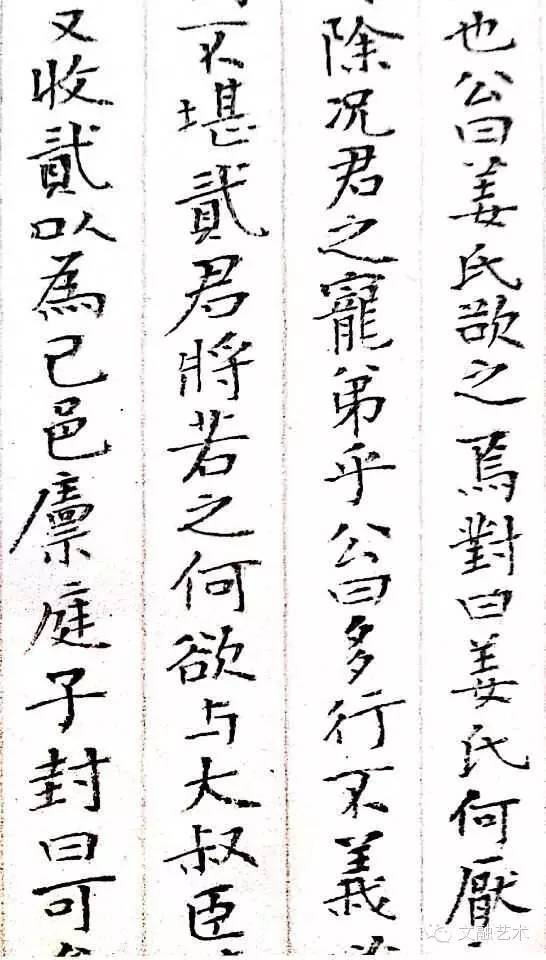 也公曰姜氏欲之焉對曰姜氏何厭
除况君之寵弟乎公曰多行不義
不堪貳君將若之何欲与大叔臣
又收貳以為己邑廪庭子封曰可
文融艺术